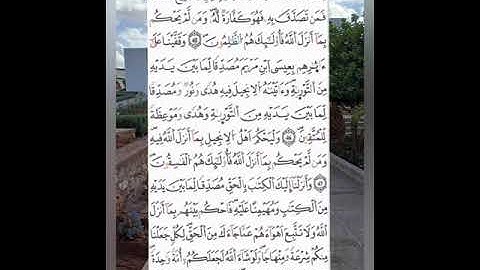 فَمَن تَصَدَّقَ بِهِۦ فَهُوَ كَفَّارَةٞ لَّهُۥۚ وَمَن لَّمۡ يَحۡكُم
بِمَآ أَنزَلَ ٱللَّهُ فَأُوْلَٰٓئِكَ هُمُ ٱلظَّٰلِمُونَ وَقَفَّيۡنَا عَلَىٰٓ
ءَاثَٰرِهِم بِعِيسَى ٱبۡنِ مَرۡيَمَ مُصَدِّقٗا لِّمَا بَيۡنَ يَدَيۡهِ
مِنَ ٱلتَّوۡرَىٰةِۖ وَءَاتَيۡنَٰهُ ٱلۡإِنجِيلَ فِيهِ هُدٗى وَنُورٞ وَمُصَدِّقٗا
لِّمَا بَيۡنَ يَدَيۡهِ مِنَ ٱلتَّوۡرَىٰةِ وَهُدٗى وَمَوۡعِظَةٗ
لِّلۡمُتَّقِينَ وَلۡيَحۡكُمۡ أَهۡلُ ٱلۡإِنجِيلِ بِمَآ أَنزَلَ ٱللَّهُ فِيهِۚ
وَمَن لَّمۡ يَحۡكُم بِمَآ أَنزَلَ ٱللَّهُ فَأُوْلَٰٓئِكَ هُمُ ٱلۡفَٰسِقُونَ
وَأَنزَلۡنَآ إِلَيۡكَ ٱلۡكِتَٰبَ بِٱلۡحَقِّ مُصَدِّقٗا لِّمَا بَيۡنَ يَدَيۡهِ
مِنَ ٱلۡكِتَٰبِ وَمُهَيۡمِنًا عَلَيۡهِۖ فَٱحۡكُم بَيۡنَهُم بِمَآ أَنزَلَ
ٱللَّهُۖ وَلَا تَتَّبِعۡ أَهۡوَآءَهُمۡ عَمَّا جَآءَكَ مِنَ ٱلۡحَقِّۚ لِكُلّٖ جَعَلۡنَا
مِنكُمۡ شِرۡعَةٗ وَمِنۡهَاجٗاۚ وَلَوۡ شَآءَ ٱللَّهُ لَجَعَلَكُمۡ أُمَّةٗ وَٰحِدَةٗ